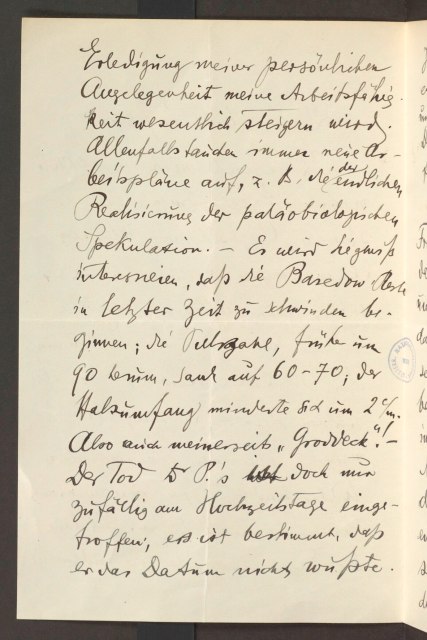 Erledigung meiner persönlichen
Angelegenheit meine Arbeitsfähig-
keit wesentlich steigern wird.
Allenfalls tauchen immer neue Ar-
beitspläne auf, z. B. die der endlichen
Realisierung der paläobiologischen
Spekulation. – Es wird Sie gewiß
interessieren, daß die Basedow Reste
in letzter Zeit zu schwinden be-
ginnen; die Pulszahl, früher um
90 herum, sank auf 60–70; der
Halsumfang minderte sich um 2 c/m.
Also auch meinerseits „Groddeck"! –
Der Tod Dr P.'s ist doch nur
zufällig am Hochzeitstage einge-
troffen; es ist bestimmt, daß
er das Datum nicht wußte.